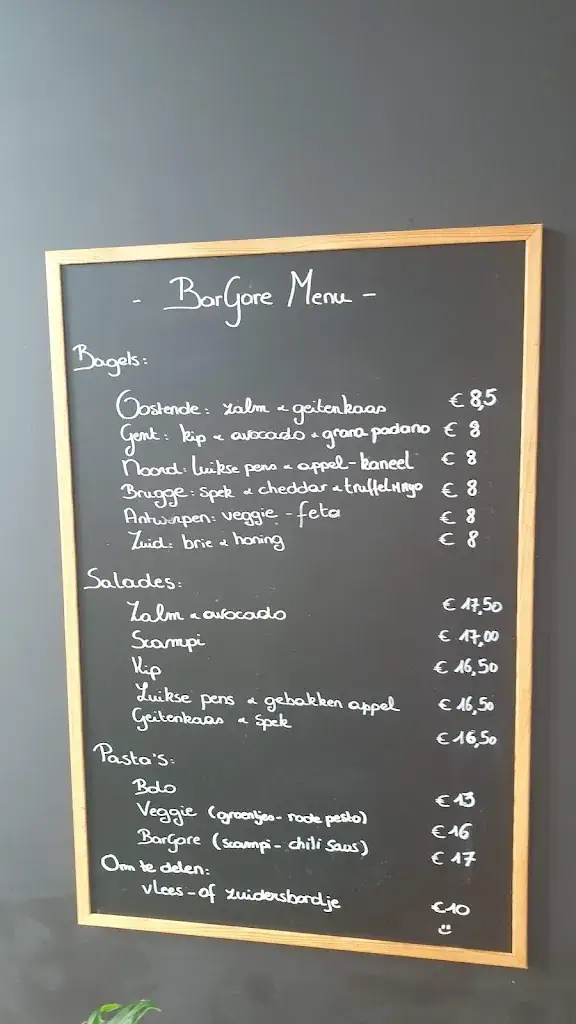 - BarGare Menu -
Bagels:
Oostende: zalm & geitenkaas € 8,5
Gent: kip & avocado & grana padano € 8
Noord: luikse pens & appel-kaneel € 8
Brugge: spek & cheddar & truffelmayo € 8
Antwerpen: veggie - feta € 8
Zuid: brie & honing € 8
Salades:
Zalm & avocado € 17,50
Scampi € 17,00
Kip € 16,50
Luikse pens & gebakken appel € 16,50
Geitenkaas & spek € 16,50
Pasta's:
Bolo € 13
Veggie (groentjes - rode pesto) € 16
BarGare (scampi - chili saus) € 17
Om te delen:
vlees- of zuidersbordje €10